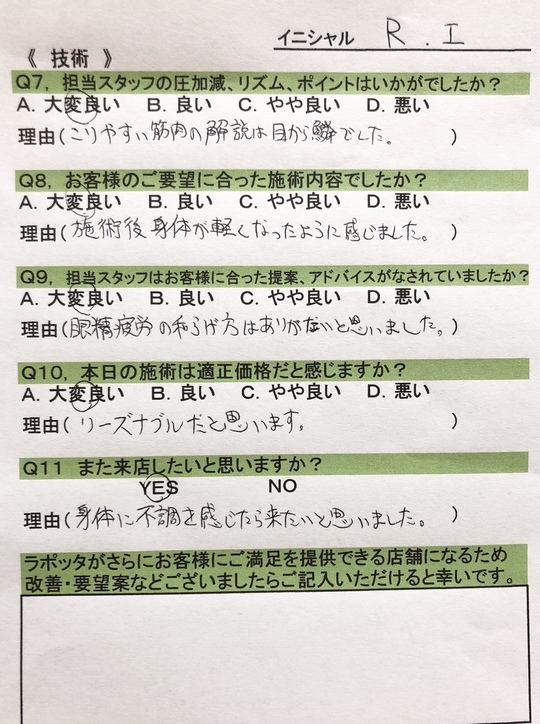 イニシャル R.I
《 技術 》
Q7, 担当スタッフの圧加減、リズム、ポイントはいかがでしたか?
A. 大変良い B. 良い C. やや良い D. 悪い
理由(こりやすい筋肉の解説は目から鱗でした。)
Q8, お客様のご要望に合った施術内容でしたか?
A. 大変良い B. 良い C. やや良い D. 悪い
理由(施術後身体が軽くなったように感じました。)
Q9, 担当スタッフはお客様に合った提案、アドバイスがなされていましたか?
A. 大変良い B. 良い C. やや良い D. 悪い
理由(眼精疲労の和らげ方はありがたいと思いました。)
Q10, 本日の施術は適正価格だと感じますか?
A. 大変良い B. 良い C. やや良い D. 悪い
理由(リーズナブルだと思います。)
Q11 また来店したいと思いますか?
YES NO
理由(身体に不調を感じたら来たいと思いました。)
ラポッタがさらにお客様にご満足を提供できる店舗になるため
改善・要望案などございましたらご記入いただけると幸いです。